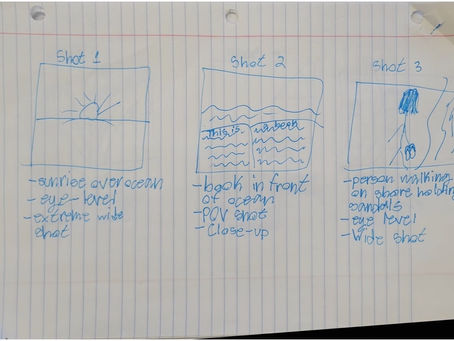 Shot 1
Shot 2
Shot 3
This is a book
-sunrise over ocean
-eye-level
-extreme wide
shot
-book in front
of ocean
-POV shot
-Close-up
-person walking
on shore holding
sandals
-eye level
-Wide shot